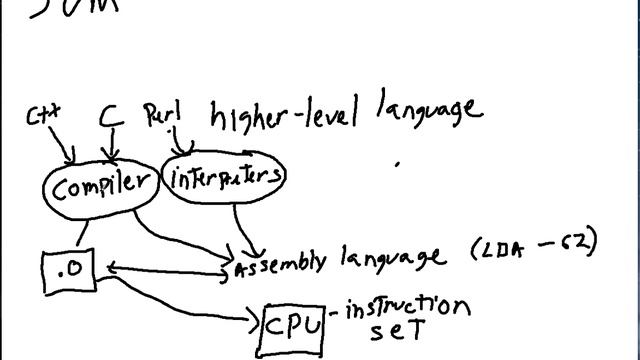 C++ C Perl higher-level language
compiler interpreters
.O Assembly language (LDA - 62)
CPU - instruction
set